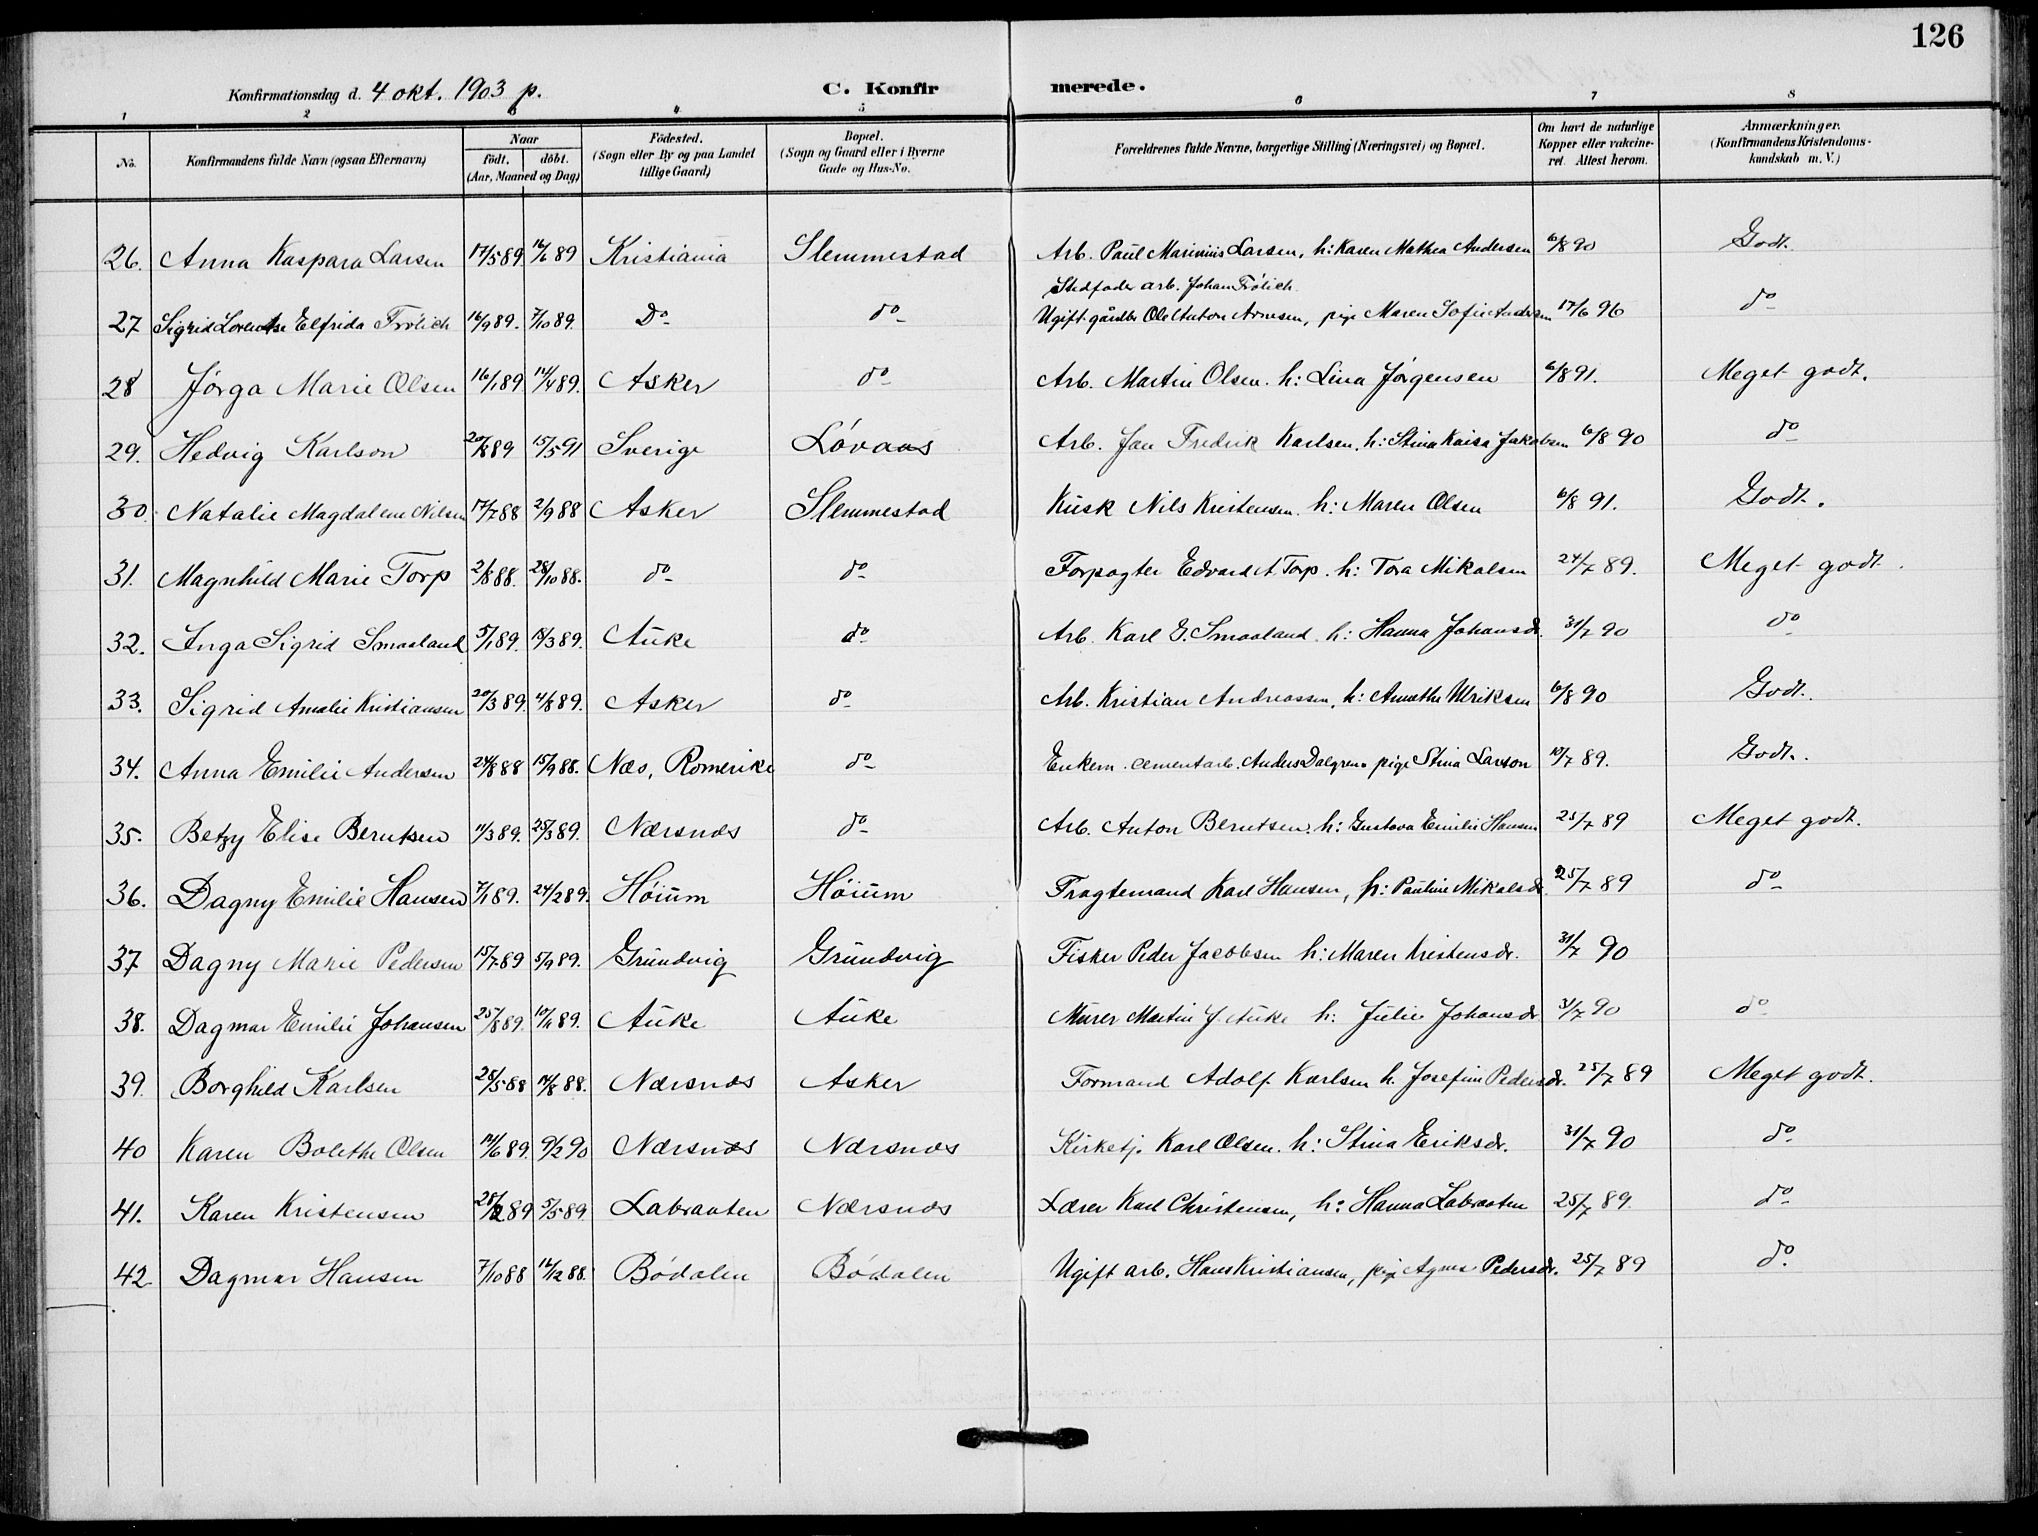 126
Konfirmationsdag d. 4 okt. 1903 p. C. Konfirmerede.
1 2 3 4 5 6 7 8
No. Konfirmandens fulde Navn (ogsaa Efternavn) Naar født. døbt. (Aar, Maaned og Dag) Fødested. (Sogn eller By og paa Landet tillige Gaard) Bopæl. (Sogn og Gaard eller i Byerne Gade og Hus-No. Forældrenes fulde Navne, borgerlige Stilling (Næringsvei) og Bopæl. Om havt de naturlige Kopper eller vakcineret. Attest herom. Anmærkninger. (Konfirmandens Kristendomskundskab m. V.)
26. Anna Kaspara Larsen 17/5 89. 16/6 89 Kristiania Slemmestad Arb. Paul Marinius Larsen, h: Karen Mathea Andersen 6/8 90 Godt.
Stedfader arb. Johan Frölich
27 Sigrid Lorentse Elfrida Frölich 16/9 89. 7/10 89. Do Do Ugift gårdbr Ole Anton Arnesen, pige Maren Sofie Andersen 17/6 96 do
28 Jørga Marie Olsen 16/1 89 14/4 89. Asker do Arb. Martin Olsen. h: Lina Jørgensen 6/8 91. Meget godt.
29. Hedvig Karlson 20/8 89 15/5 91 Sverige Løvaas Arb. Jan Fredrik Karlsen. h: Stina Kaisa Jakobsen 6/8 90 do
30. Natalie Magdalene Nilsen 17/7 88 2/9 88 Asker Slemmestad Kusk Nils Kristensen. h: Maren Olsen 6/8 91. Godt.
31. Magnhild Marie Torp 2/8 88. 28/10 88. do do Forpagter Edvard A. Torp. h: Tora Mikalsen 24/7 89. Meget godt.
32. Inga Sigrid Smaaland 5/1 89. 18/3 89. Auke do Arb. Karl G. Smaaland. h: Hanna Johansdr. 31/7 90 do
33. Sigrid Amalie Kristiansen 20/3 89. 4/8 89. Asker do Arb. Kristian Andreassen, h: Amathe Ulriksen 6/8 90 Godt.
34. Anna Emilie Andersen 24/8 88 15/9 88. Næs, Romerike do Enkem. cementarb. Anders Dalgren pige Stina Larson 10/7 89. Godt.
35. Betzy Elise Berntsen 11/3 89. 25/3 89. Nærsnæs do Arb. Anton Berntsen. h: Gustava Emilie Hansen 25/7 89 Meget godt.
36. Dagny Emilie Hansen 7/1 89. 24/2 89. Høium Høium Fragtemand Karl Hansen, h: Pauline Mikalsdr. 25/7 89 do
37 Dagny Marie Pedersen 15/7 89 5/9 89. Grundvig Grundvig Fisker Peder Jacobsen h: Maren Kristensdr. 31/7 90
38. Dagmar Emilie Johansen 25/8 89. 10/11 89. Auke Auke Murer Martin J. Auke h: Julie Johansdr. 31/7 90 do
39. Borghild Karlsen 28/5 88 12/8 88. Nærsnæs Asker Formand Adolf Karlsen h. Josefine Pedersdr. 25/7 89 Meget godt.
40 Karen Bolethe Olsen 12/6 89. 9/2 90 Nærsnæs Nærsnæs Kirketj. Karl Olsen. h: Stina Eriksdr. 31/7 90 do
41. Karen Kristensen 28/2 89 5/5 89. Labraaten Nærsnæs Lærer Karl Christensen, h: Hanna Labraaten 25/7 89. do
42 Dagmar Hansen 7/10 88 16/12 88. Bødalen Bødalen Ugift arb. Hans Kristiansen, pige Agnes Pedersdr. 25/7 89 do.